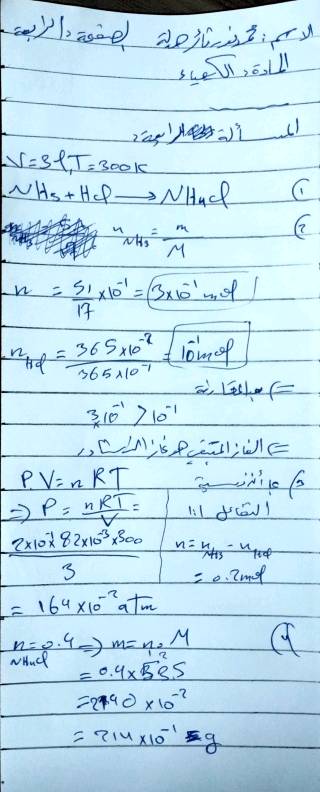 الاسم: محمد نذير الصفحة: الرابعة
المادة: الكيمياء
المسألة الرابعة:
V=3l, T=300K
NH3 + HCl → NH4Cl (1
n NH3 = m/M (2
n = 51/17 × 10^-1 = 3×10^-1 mol
n HCl = 365×10^-2 / 365×10^-1 = 10^-1 mol
=> بالمقارنة
3×10^-1 > 10^-1
=> الغاز المتبقي هو غاز النشادر
3) بما أن نسبة
التفاعل 1:1
n = n NH3 - n HCl
= 0.2 mol
P.V = n RT
=> P = nRT/V =
2×10^-1 × 82×10^-3 × 300 / 3
= 164×10^-2 atm
n NH4Cl = 0.4 => m = n . M (4
= 0.4 ×
= 2140 × 10^-2
= 214×10^-1 g